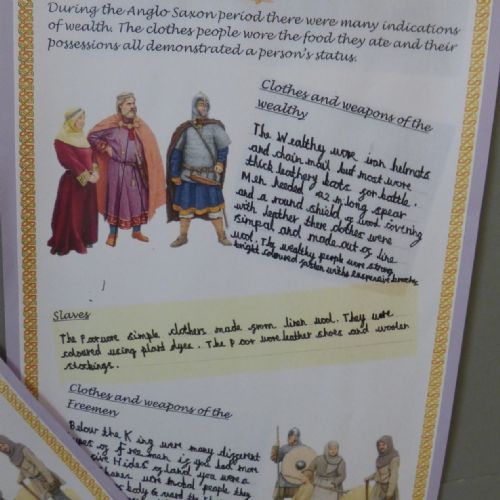 During the Anglo Saxon period there were many indications
of wealth. The clothes people wore the food they ate and their
possessions all demonstrated a person's status.
Clothes and weapons of the
wealthy
The Wealthy wore iron helmets
and chain mail but most wore
thick leathery coats for battle.
Men needed a 2 m long spear
and a round shield of wood covering
with leather there clothes were
simpal and made out of line
wool. The wealthy people wore strong
bright coloured
Slaves
The Poor wore simple clothers made from linen wool. They were
coloured using plant dyes. The Poor wore leather shoes and woolen
stockings.
Clothes and weapons of the
Freemen
Below the King were many different
types of freeman if you had more
five Hides of land you were a
were modal people they
body & guard the